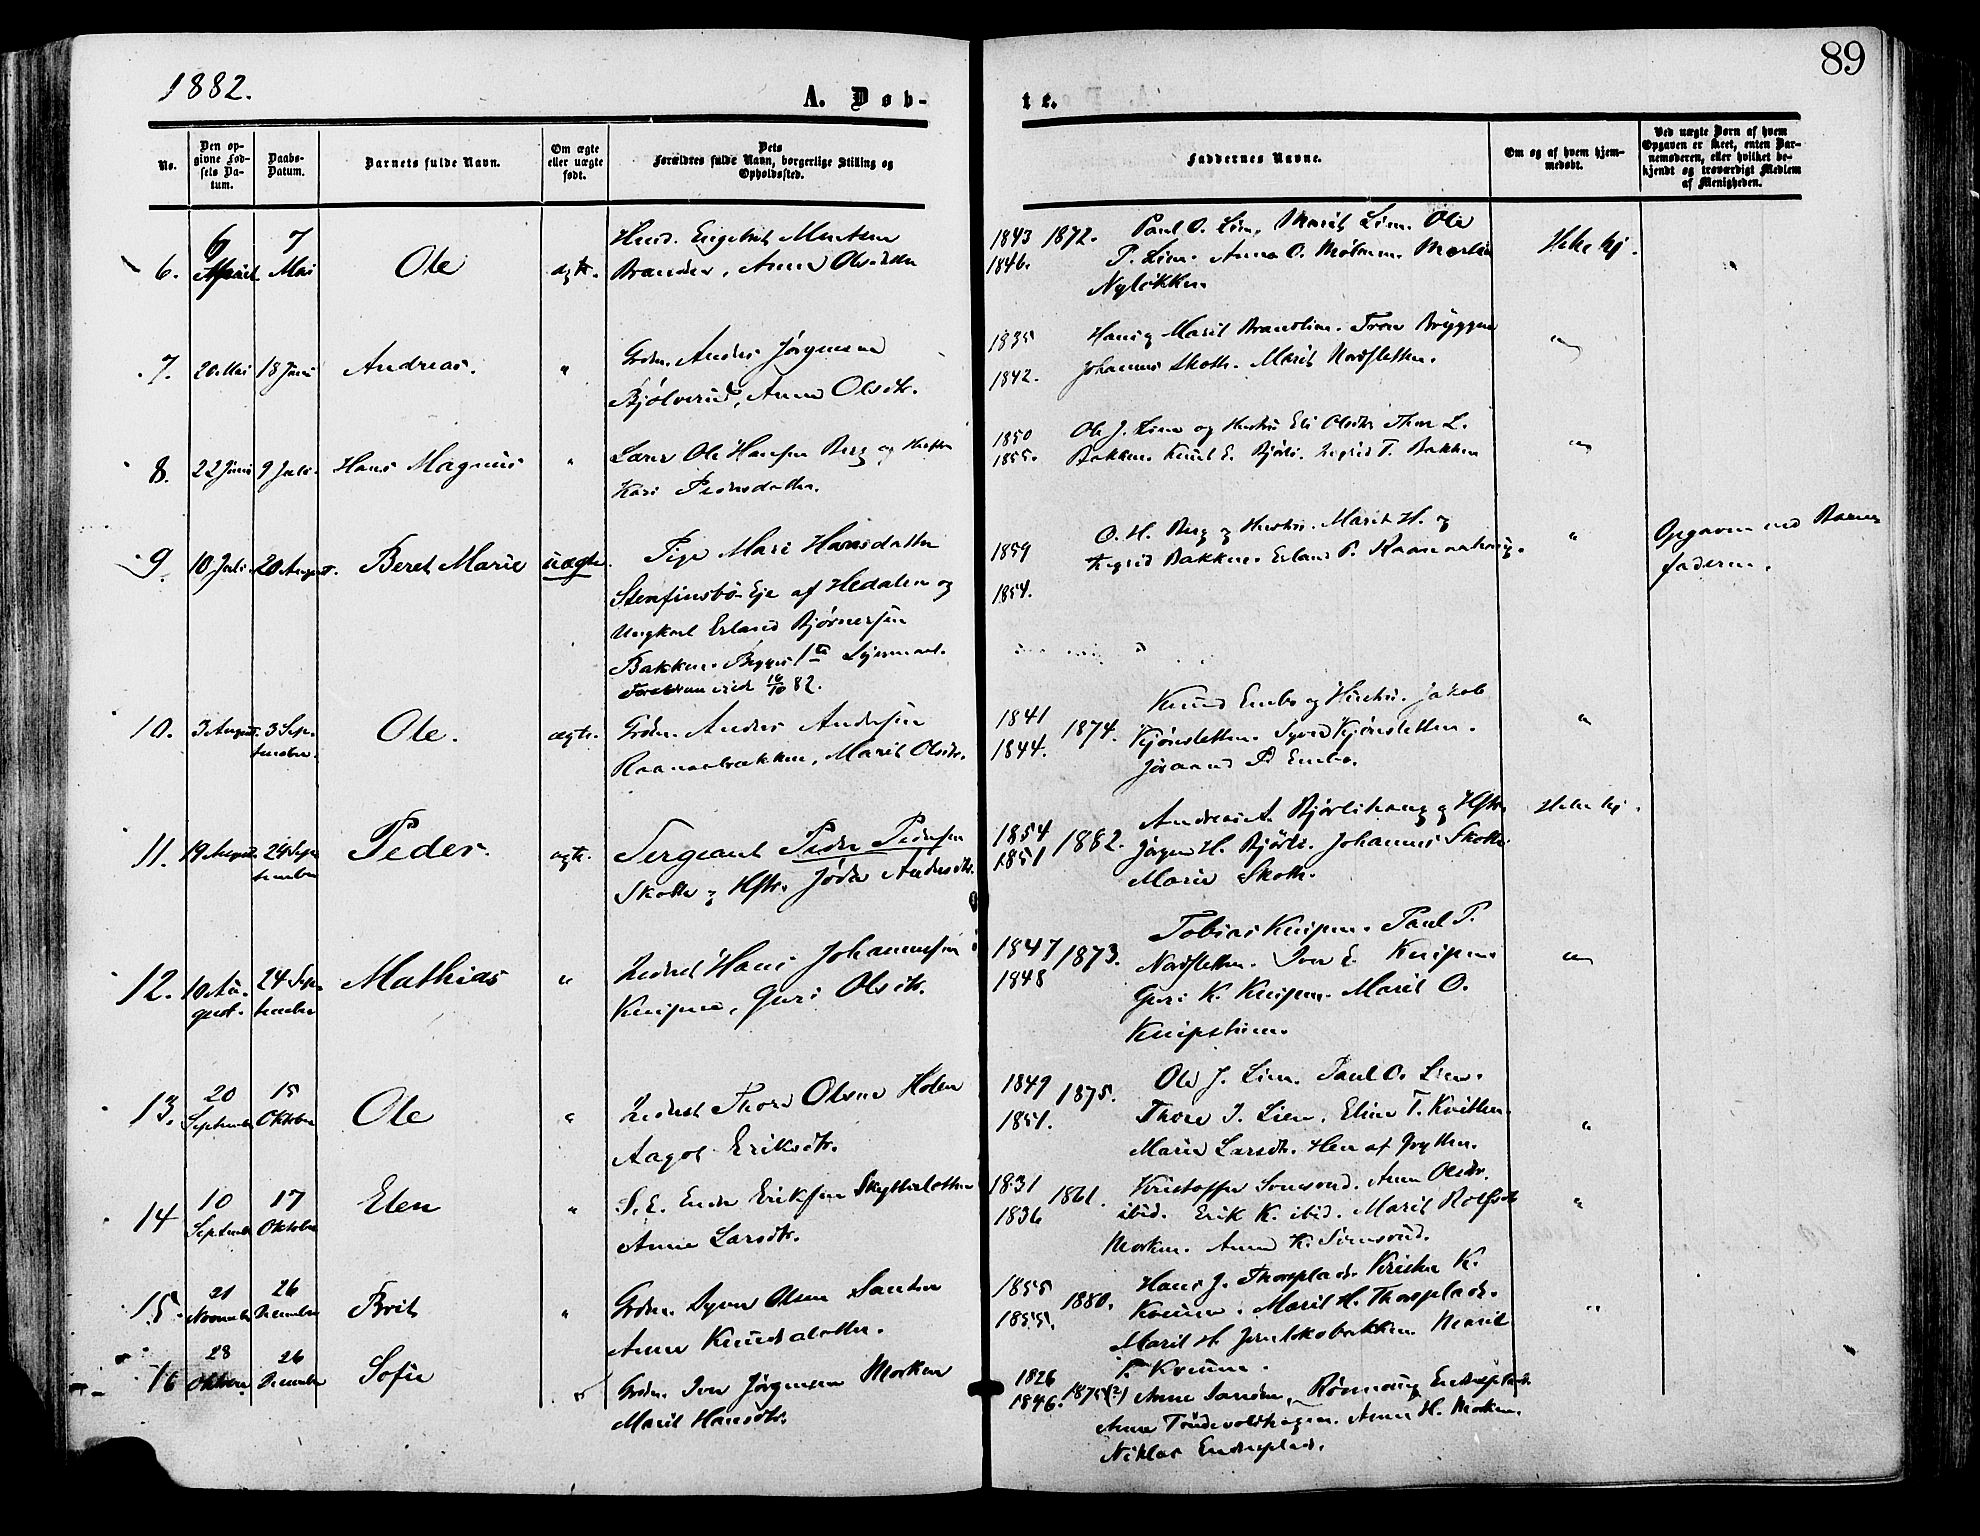 1882.
A. Døb-
te.
89
No.
Den op-
givne Fød-
sels Da-
tum.
Daabs-
Datum.
Barnets fulde Navn.
Om ægte
eller uægte
født.
Dets
Forældres fulde Navn, borgerlige Stilling og
Opholdssted.
Faddernes Navne.
Om og af hvem hjem-
medøbt.
Ved uægte Børn af hvem
Opgaven er skeet, enten Bar-
nemoderen, eller hvilket be-
kjendt og troværdigt Medlem
af Menigheden.
6.
6
April
7
Mai
Ole
ægte.
1843 1872.
1846.
Paul O. Lien, Marit Lien. Ole
P. Lien. Anna O.
Nyløkken.
Ikke hj.
7.
20 Mai
18 Juni
Andreas.
"
Grdm. Anders Jørgensen
Bjølverud, Anne Olsdtr.
1835
1842.
Hans og Marit Brandlien. Tron Bryggen
Johannes Skotte. Marit Nordsletten.
"
8.
22 Juni
9 Juli.
Hans Magnus
"
Lærer Ole Hansen Berg og Hustru
Kari Pedersdatter.
1850
1855.
Ole J. Lien og Hustru Eli Olsdtr. Thor L.
Bakken. Knut E. Bjørli. Ingrid T. Bakken
"
9.
10 Juli
20 August.
Beret Marie
uægte.
Pige Mari Hansdatter
Stenfinsbø Eje af Hedalen og
Ungkarl Erland Bjørnersen
Bakken. Begges 1ste Leiermaal.
16/10 82.
1859
1854.
O. H. Berg og Hustru. Marit H. og
Ingrid Bakken. Erland P.
"
Opgaven ved Barne
faderen.
10.
3 August.
3 Sep-
tember.
Ole.
ægte.
Grdm. Anders Andersen
Raanaabakken, Marit Olsdtr.
1841 1874.
1844.
Knud Embo og Hustru. Jakob
Kjønsletten. Syver Kjønsletten.
Jøraand P. Embo.
"
11.
19 August.
24 Sep-
tember
Peder.
ægte.
Sergeant Peder Pedersen
Skotte og Hstr. Jøda Andersdtr.
1854 1882.
1851
Andreas A. Bjørlihaug og Hstr.
Jørgen H. Bjørli. Johannes Skotte
Marie Skotte.
Ikke hj.
12.
10 Au-
gust.
24 Sep-
tember
Mathias
"
Inderst Hans Johannesen
Kneipen, Guri Olsdtr.
1847 1873.
1848
Tobias Kneipen. Paul P.
Nordsletten. Iver E. Kneipen
Guri K. Kneipen. Marit O.
"
13.
20
September
15
Oktober
Ole
"
Inderst Thore Olsen Holen
Aagot Eriksdtr.
1849 1875.
1851.
Ole J. Lien. Paul O. Lien.
Thore J. Lien. Eline T.
Marie Larsdtr.
"
14
10
September
17
Oktober
Elen
"
S.E. Ender Eriksen
Anne Larsdtr.
1831 1861.
1836
Kristoffer Sonsrud. Anne Olsdtr.
ibid. Erik K. ibid. Marit
Morken. Anne K. Sonsrud.
"
15.
21
November
26
December
Brit
"
Grdm. Syver Olsen Sanden
Anne Knudsdatter.
1855 1880.
1855.
Hans J. Thorsplads. Kristen K.
Kruun. Marit H. Thorsplads.
Marit H. Marit
P. Kruun.
"
16
28
Oktober
26
December
Sofie
"
Grdm. Iver Jørgensen Morken
Marit Hansdtr.
1826
1846. 1875(?)
Anne Sanden, Rønnaug Endreplads
Anne Anne H. Morken.
Niklas Endreplads.